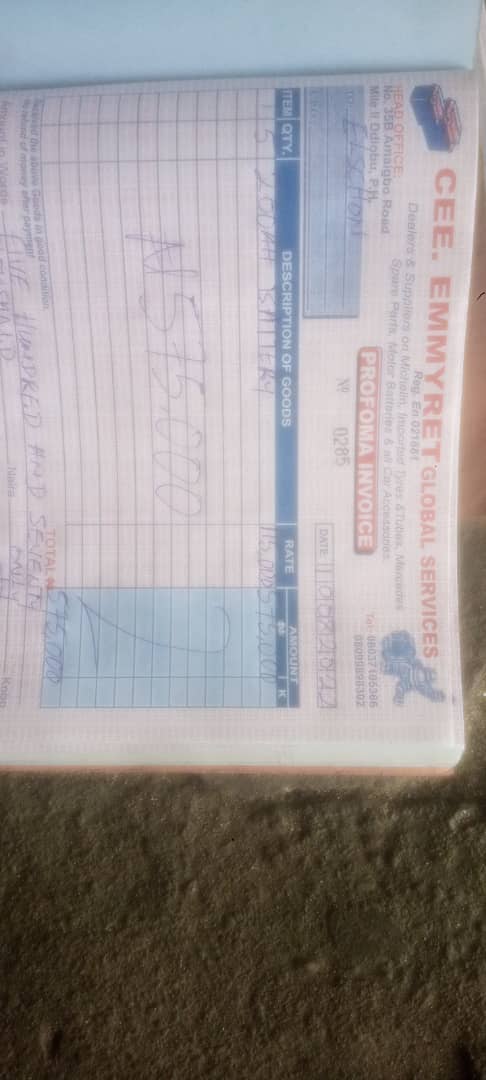 CEE. EMMYRET GLOBAL SERVICES
Reg. En 021681
Dealers & Suppliers on Michelin, Imported Tyres & Tubes, Mercedes
Spare Parts, Motor Batteries & all Car Accessories.
HEAD OFFICE:
No. 35B Amaigbo Road
Mile II Diobu, P.H.
Tel:
PROFOMA INVOICE
No 0285
DATE:
ITEM QTY. DESCRIPTION OF GOODS RATE AMOUNT
K
5 200AH BATTERY 115,000 575,000
N575,000
TOTAL 575,000
Received the above Goods in good condition
No refund of money after payment
Amount in Words FIVE HUNDRED AND SEVENTY
Naira
Kobo